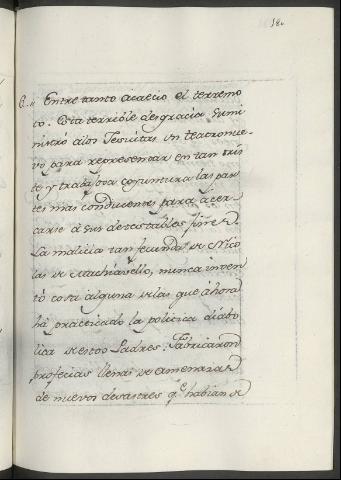 180
6.. Entre tanto acaeció el terremo
to. Esta terrible desgracia sumi
nistró a los Jesuitas un teatro nue-
vo para representar en tan tris
te y trabajosa coyuntura las par
tes mas conducentes para acer
carse a sus detestables fines.
La malicia tan fecunda de Nico
las de Machiavello, nunca inven
tó cosa alguna de las que ahora
há practicado la politica diabo
lica de estos Padres. Fabricaron
profecias llenas de amenazas
de nuevos desastres q.e habian de